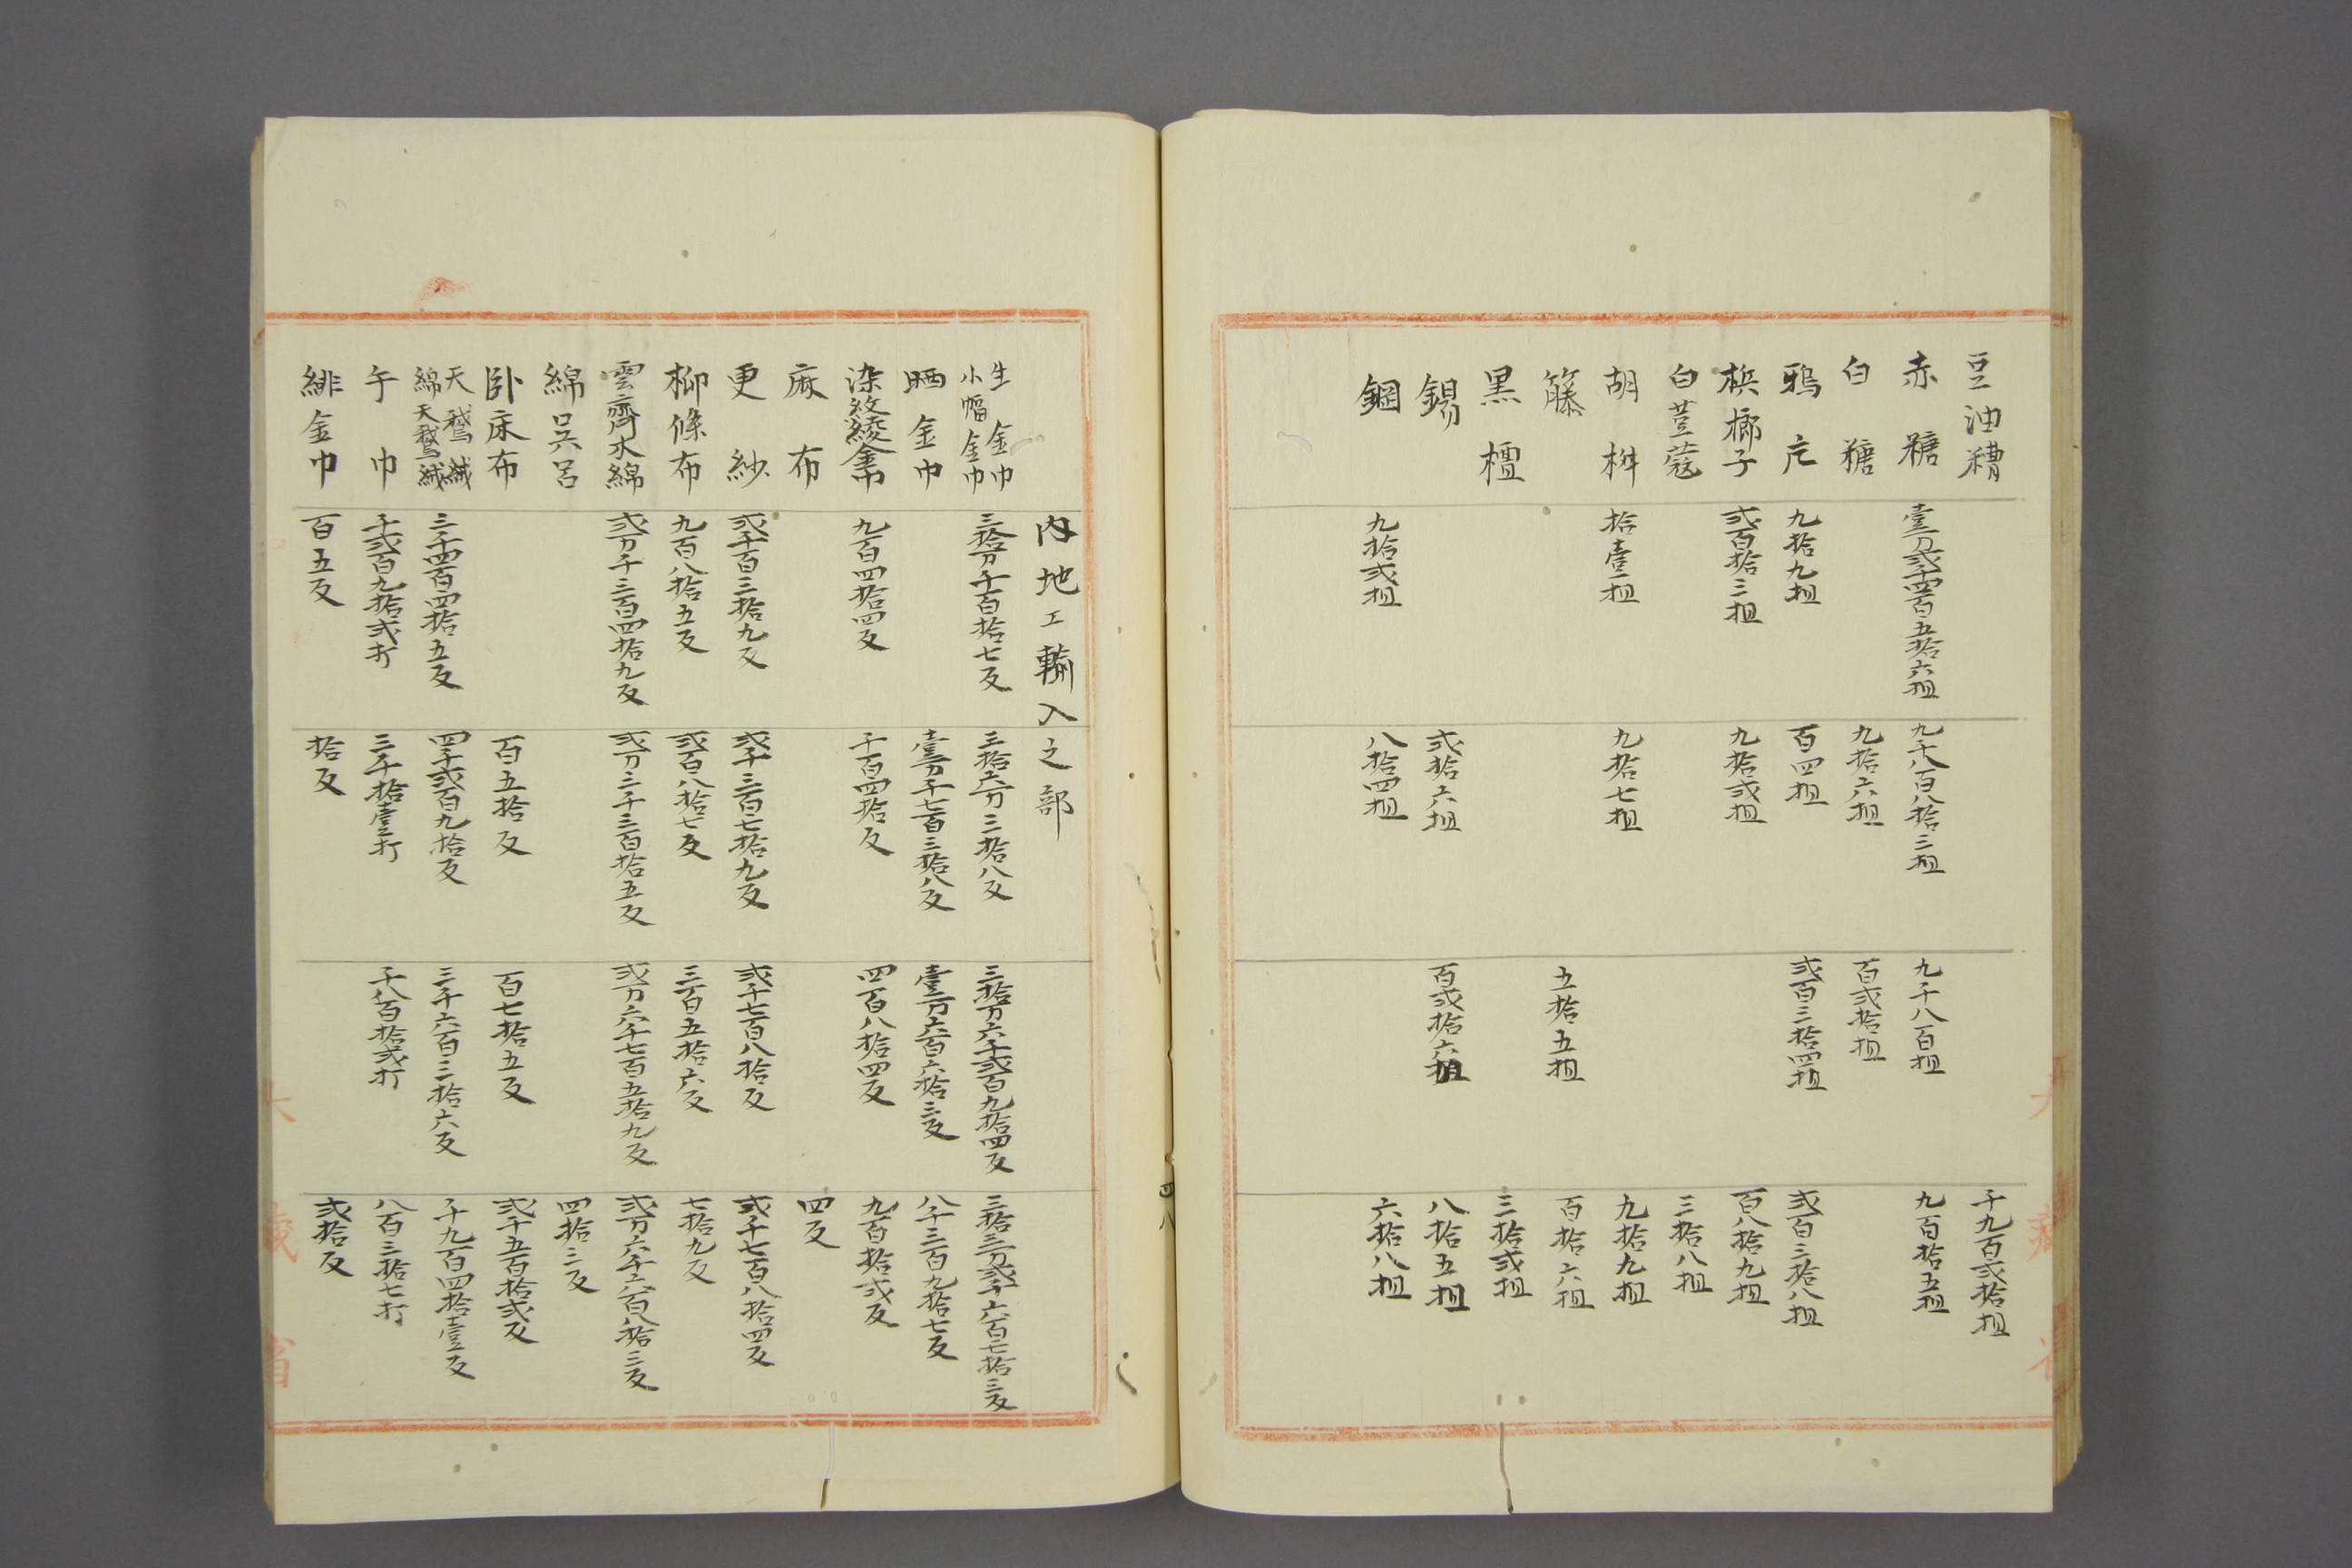 豆油糟 千九百弐拾担
赤糖 壹万弐千四百五拾六担 九千八百八拾三担 九千八百担 九百拾五担
白糖 九拾六担 百弐拾担
鴉片 九拾九担 百四担 弐百三拾四担 弐百三拾八担
梹榔子 弐百拾三担 九拾弐担 百八拾九担
白荳蔲 三拾八担
胡椒 拾壹担 九拾七担 九拾九担
籐 五拾五担 百拾六担
黒檀 三拾弐担
錫 弐拾六担 百弐拾六担 八拾五担
鋼 九拾弐担 八拾四担 六拾八担
大藏省
内地エ輸入之部
生金巾
小幅金巾 三拾万千百拾七反 三拾六万三拾八反 三拾万六千弐百九拾四反 三拾三万弐千六百七拾三反
晒金巾 壹万千七百三拾八反 壹万六百六拾三反 八千三百九拾七反
染紋綾金巾 九百四拾四反 千百四拾反 四百八拾四反 九百拾弐反
麻布 四反
更紗 弐千百三拾九反 弐千三百七拾九反 弐千七百八拾反 弐千七百八拾四反
柳條布 九百八拾五反 弐百八拾七反 三百五拾六反 七拾九反
雲齊木綿 弐万千三百四拾九反 弐万三千三百拾五反 弐万六千七百五拾九反 弐万六千六百八拾三反
綿呉呂 四拾三反
卧床布 百五拾反 百七拾五反 弐千五百拾弐反
天鵞絨
綿天鵞絨 三千四百四拾五反 四千弐百九拾反 三千六百三拾六反 千九百四拾壹反
午巾 千弐百九拾弐打 三千拾壹打 千八百拾弐打 八百三拾七打
緋金巾 百五反 拾反 弐拾反
四八
大藏省